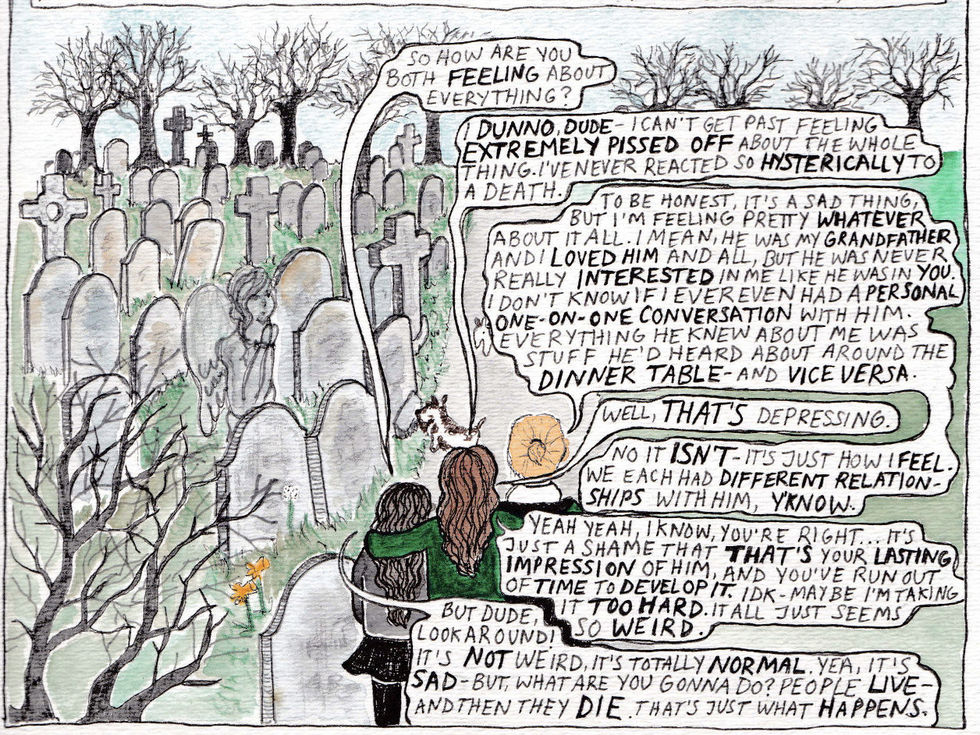 SO HOW ARE YOU
BOTH FEELING ABOUT
EVERYTHING?
I DUNNO, DUDE - I CAN'T GET PAST FEELING
EXTREMELY PISSED OFF ABOUT THE WHOLE
THING. I'VE NEVER REACTED SO HYSTERICALLY TO
A DEATH.
TO BE HONEST, IT'S A SAD THING,
BUT I'M FEELING PRETTY WHATEVER
ABOUT IT ALL. I MEAN, HE WAS MY GRANDFATHER
AND I LOVED HIM AND ALL, BUT HE WAS NEVER
REALLY INTERESTED IN ME LIKE HE WAS IN YOU.
I DON'T KNOW IF I EVER EVEN HAD A PERSONAL
ONE-ON-ONE CONVERSATION WITH HIM.
EVERYTHING HE KNEW ABOUT ME WAS
STUFF HE'D HEARD ABOUT AROUND THE
DINNER TABLE - AND VICE VERSA.
WELL, THAT'S DEPRESSING.
NO IT ISN'T - IT'S JUST HOW I FEEL.
WE EACH HAD DIFFERENT RELATION-
SHIPS WITH HIM, Y'KNOW.
YEAH YEAH, I KNOW, YOU'RE RIGHT... IT'S
JUST A SHAME THAT THAT'S YOUR LASTING
IMPRESSION OF HIM, AND YOU'VE RUN OUT
OF TIME TO DEVELOP IT. IDK - MAYBE I'M TAKING
IT TOO HARD. IT ALL JUST SEEMS
SO WEIRD.
BUT DUDE,
LOOK AROUND!
IT'S NOT WEIRD, IT'S TOTALLY NORMAL. YEA, IT'S
SAD - BUT, WHAT ARE YOU GONNA DO? PEOPLE LIVE -
AND THEN THEY DIE. THAT'S JUST WHAT HAPPENS.